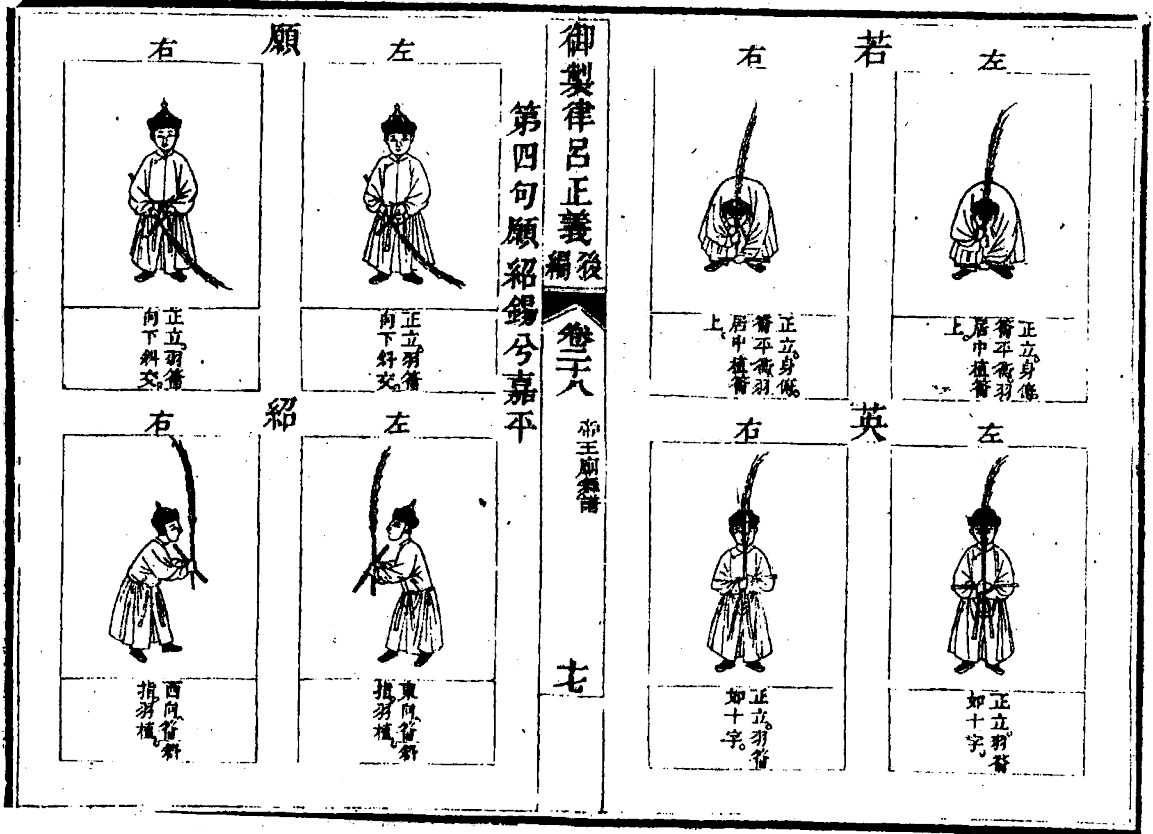 若
左
正立。身俯。
籥平衡。羽
居中植籥
上。
右
正立。身俯。
籥平衡。羽
居中植籥
上。
英
左
正立。羽籥
如十字。
右
正立。羽籥
如十字。
御製律呂正義後編
卷二十八
帝王廟舞譜
十七
第四句願紹錫兮嘉平
願
左
正立。羽籥
向下斜交。
右
正立。羽籥
向下斜交。
紹
左
東向。籥斜
指。羽植。
右
西向。籥斜
指。羽植。